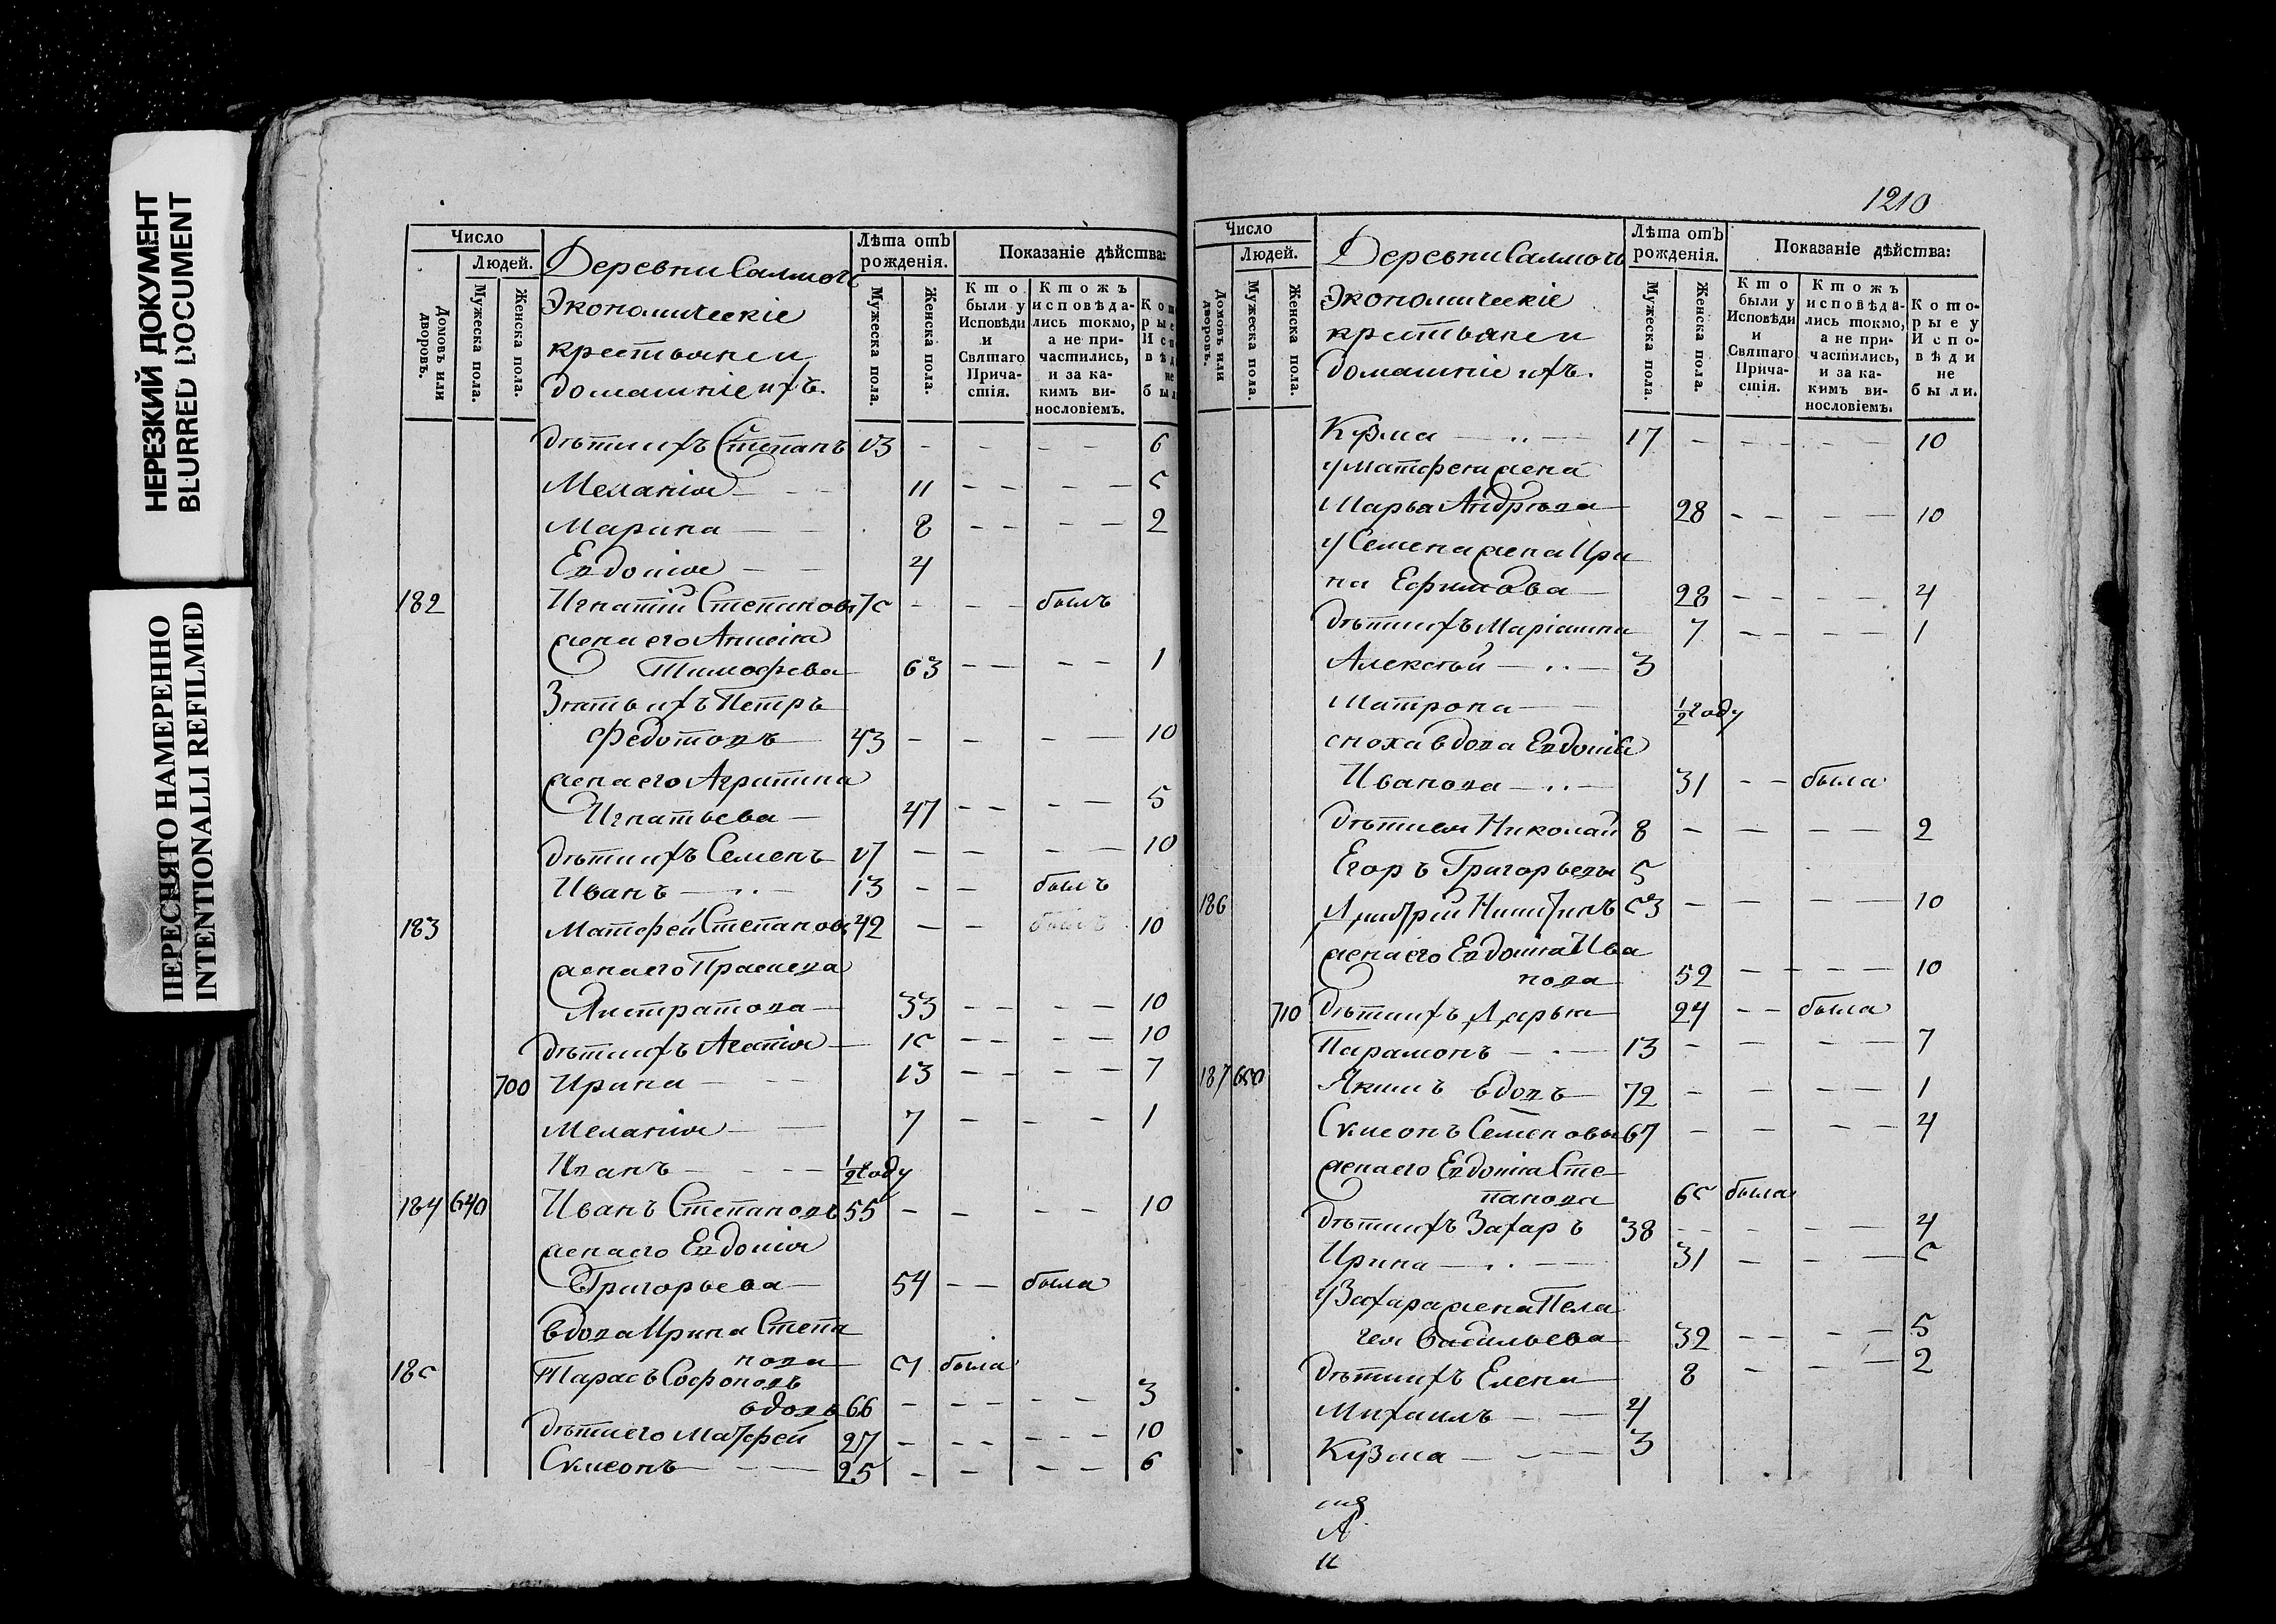 НЕРЕЗКИЙ ДОКУМЕНТ
BLURRED DOCUMENT
ПЕРЕСНЯТО НАМЕРЕННО
INTENTIONALLI REFILMED
Число
Людей.
Домовъ или дворовъ.
Мужеска пола.
Женска пола.
Деревни Салмог
Экономическіе
крестьяне и
домашніе ихъ.
Лѣта отъ рожденія.
Мужеска пола.
Женска пола.
Показаніе дѣйства:
Кто были у Исповѣди и Святаго Причастія.
Ктожъ исповѣдались токмо, а не причастились, и за какимъ винословіемъ.
дѣти ихъ Степанъ 13 6
Меланія 11 5
Марина 8 2
Евдокія 4
182 Игнатій Степановъ 75 былъ
жена его Анисія
Тимофѣева 63 1
Зять ихъ Петръ
Федотовъ 43 10
жена его Агрипина
Игнатьева 47 5
дѣти ихъ Семенъ 17 10
Иванъ 13 былъ
183 Матфей Степановъ 42 10
жена его Прасковя
Анстратова 33 10
дѣти ихъ Агапія 15 10
700 Ирина 13 7
Меланія 7 1
Иванъ ½ году
184 640 Иванъ Степановъ 55 10
жена его Евдокія
Григорьева 54 была
вдова Ирина Степа
нова 51 была
185 Тарасъ Софоновъ
вдовъ 66 3
дѣти его Матфей 27 10
Симеонъ 25 6
1210
Число
Людей.
Домовъ или дворовъ.
Мужеска пола.
Женска пола.
Деревни Салмогъ
Экономическіе
крестьяне и
домашніе ихъ.
Лѣта отъ рожденія.
Мужеска пола.
Женска пола.
Показаніе дѣйства:
Кто были у Исповѣди и Святаго Причастія.
Ктожъ исповѣдались токмо, а не причастились, и за какимъ винословіемъ.
Которые у Исповѣди не были.
Кузма 17 10
у Матфея жена
Марья Андрѣева 28 10
у Семена жена Ири
на Ефимова 28 4
дѣти ихъ Маріамна 7 1
Алексѣй 3
Матрона ½ году
сноха вдова Евдокія
Иванова 31 была
дѣти ея Николай 8 2
Егоръ Григорьевы 5
186 Дмитрей Никитинъ 53 10
жена его Евдокія Ива
нова 52 10
710 дѣти ихъ Дарья 24 была
Парамонъ 13 7
187 650 Якимъ вдовъ 72 1
Симеонъ Семеновы 67 4
жена его Евдокія Сте
панова 65 была
дѣти ихъ Захаръ 38 4
Ирина 31 5
у Захара жена Пела
гея Васильева 32 5
дѣти ихъ Елена 8 2
Михаилъ 4
Кузма 3